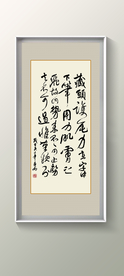 藏頭護尾力在字中
下筆用力肌膚之
麗故勢來不可止勢
去不可遏惟筆軟